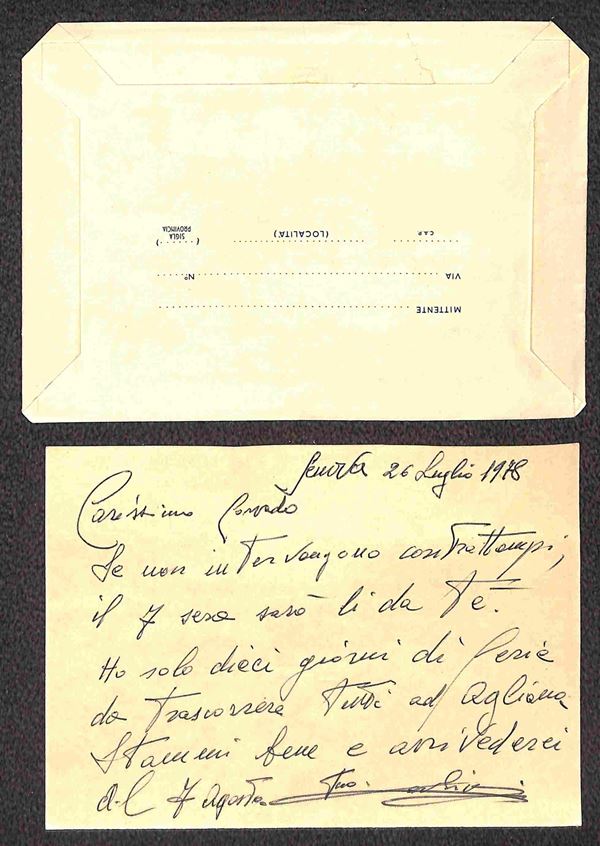 MITTENTE
VIA Nº
C.A.P. (LOCALITÀ) ( SIGLA PROVINCIA )
Genova 26 Luglio 1978
Carissimo Corrado
Se non intervengono contrattempi,
il 7 sera sarò lì da Te.
Ho solo dieci giorni di ferie
da trascorrere Tutti ad Agliana
Stammi bene e arrivederci
al 7 Agosto Tuo